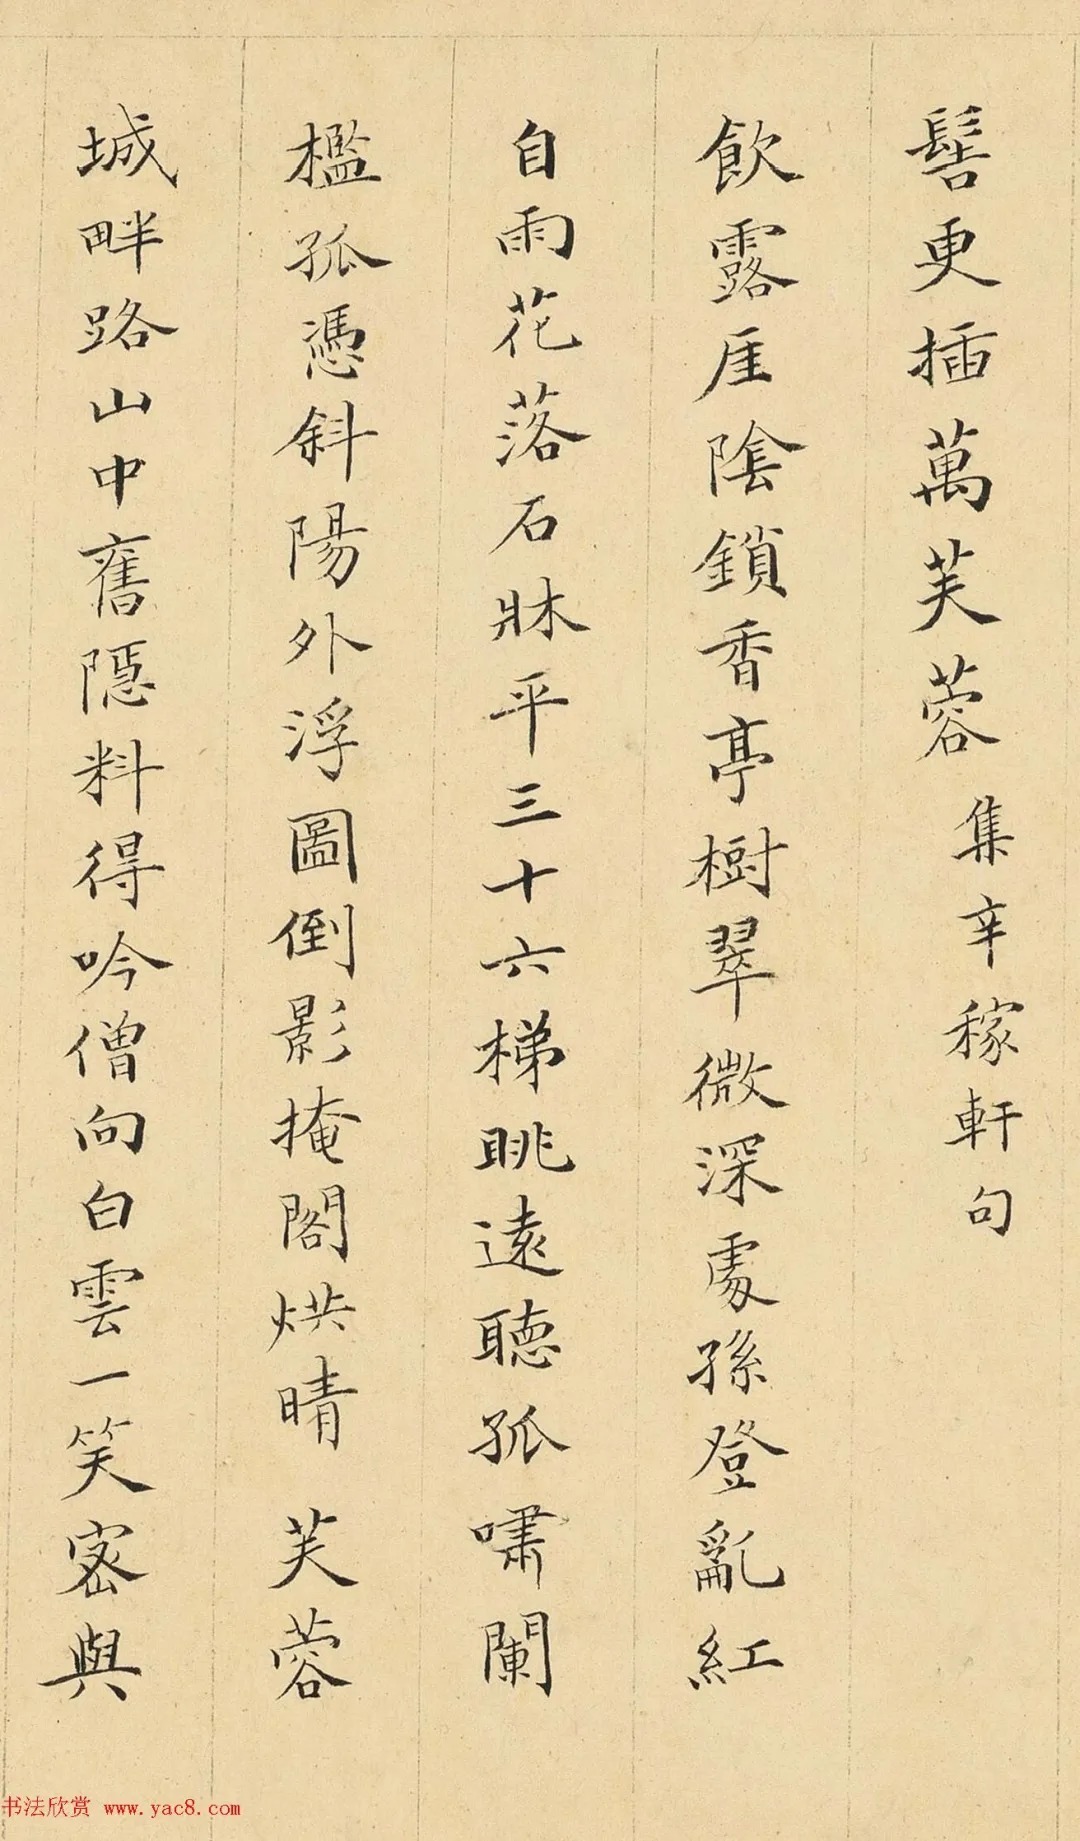 髻更插萬芙蓉 集辛稼軒句
飲露厓陰鎖香亭樹翠微深處孫登亂紅
自雨花落石牀平三十六梯眺遠聽孤嘯闌
檻孤憑斜陽外浮圖倒影掩閣烘晴 芙蓉
城畔路山中舊隱料得吟僧向白雲一笑密與
书法欣赏 www.yac8.com